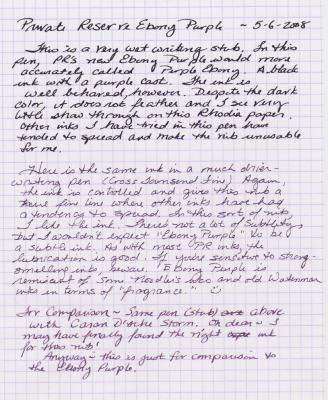 Private Reserve Ebony Purple ~ 5-6-2008
This is a very wet writing stub. In this
pen, PR's new Ebony Purple would more
accurately called Purple Ebony. A black
ink with a purple cast. The ink is
well behaved, however. Despite the dark
color, it does not feather and I see very
little show through on this Rhodia paper.
Other inks I have tried in this pen have
tended to spread and make the nib unusable
for me.
Here is the same ink in a much drier-
writing pen (Cross Townsend fine). Again,
the ink is controlled and gives this nib a
true fine line where other inks have had
a tendency to spread. In this sort of nib,
I like the ink. There's not a lot of subtlety,
but I wouldn't expect "Ebony Purple" to be
a subtle ink. As with most PR inks, the
lubrication is good. If you're sensitive to strong-
smelling inks, beware. "Ebony Purple is
remniscent of some Noodler's inks and old Waterman
inks in terms of "fragrance."
For Comparison ~ Same pen (stub) above
with Caran D'ache Storm. Oh dear ~ I
may have finally found the right ink
for this nib!
Anyway ~ this is just for comparison to
the Ebony Purple.